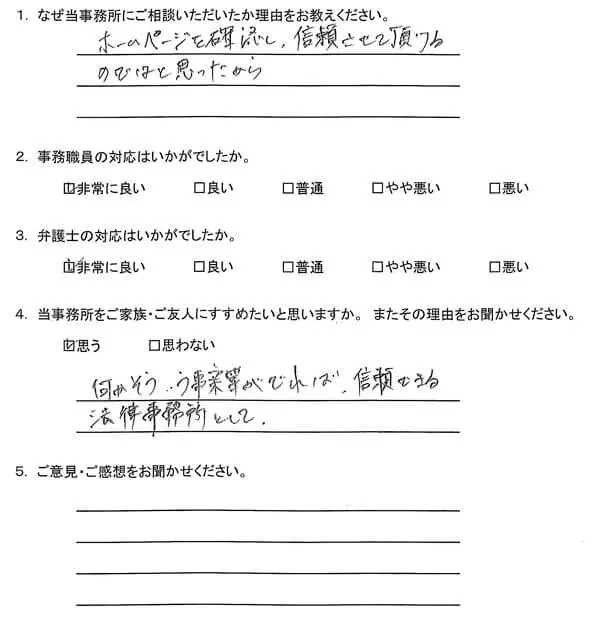 1. なぜ当事務所にご相談いただいたか理由をお教えください。
ホームページを確認し、信頼させて頂ける
のではと思ったから
2. 事務職員の対応はいかがでしたか。
☑非常に良い □良い □普通 □やや悪い □悪い
3. 弁護士の対応はいかがでしたか。
☑非常に良い □良い □普通 □やや悪い □悪い
4. 当事務所をご家族・ご友人にすすめたいと思いますか。 またその理由をお聞かせください。
☑思う □思わない
何かそういう事案等がでれば、信頼できる
法律事務所として。
5. ご意見・ご感想をお聞かせください。